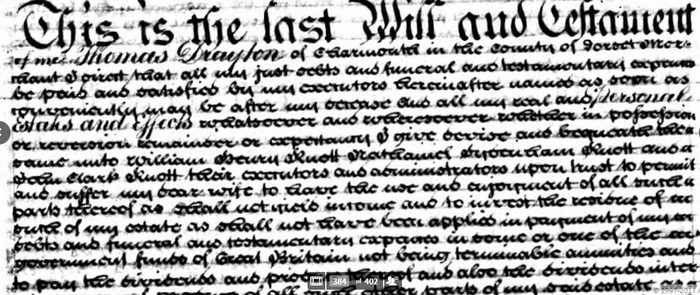 This is the last Will and Testament
of me Thomas Drayton of Charmouth in the County of Dorset Merc
hant I direct that all my just debts and funeral and testamentary expences
be paid and satisfied by my executors hereinafter named as soon as
conveniently may be after my decease and all my real and personal
Estate and effects whatsoever and wheresoever whether in possession
or reversion remainder or expectancy I give devise and bequeath the
same unto William Henry Knott Nathaniel Knott and
John Clark Knott their executors and administrators upon trust to permit
and suffer my dear wife to have the use and enjoyment of all such
parts thereof as shall not yield income and to invest the residue of
such of my estate as shall not have been applied in payment of my
debts and funeral and testamentary expences in some or one of the
government funds of Great Britain not being terminable annuities and
to pay the dividends and and also the dividends
384 of 402
of all such other parts of my said estate